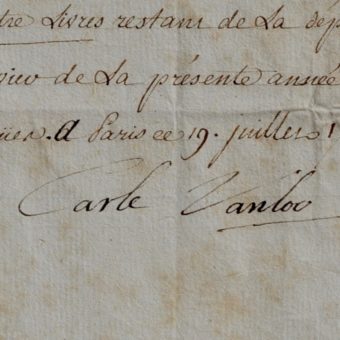 tre Livres restant de La dép
de La présente année
A Paris ce 19. juillet 1
Carle Vanloo